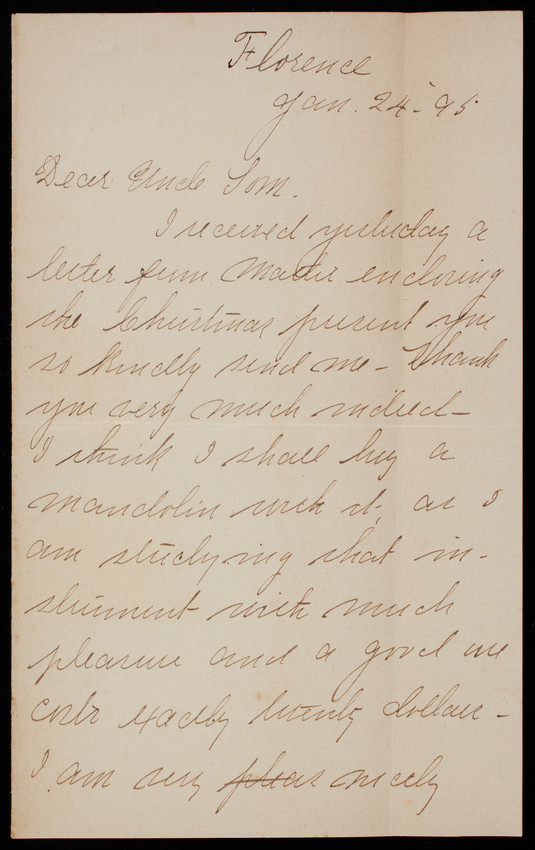 Florence
Jan. 24 - 95
Dear Uncle Tom.
I received yesterday a
letter from Mater enclosing
the Christmas present you
so kindly send me - Thank
you very much indeed -
I think I shall buy a
mandolin with it, as I
am studying that in-
strument with much
pleasure and a good one
costs exactly twenty dollars -
I am very pleas nicely